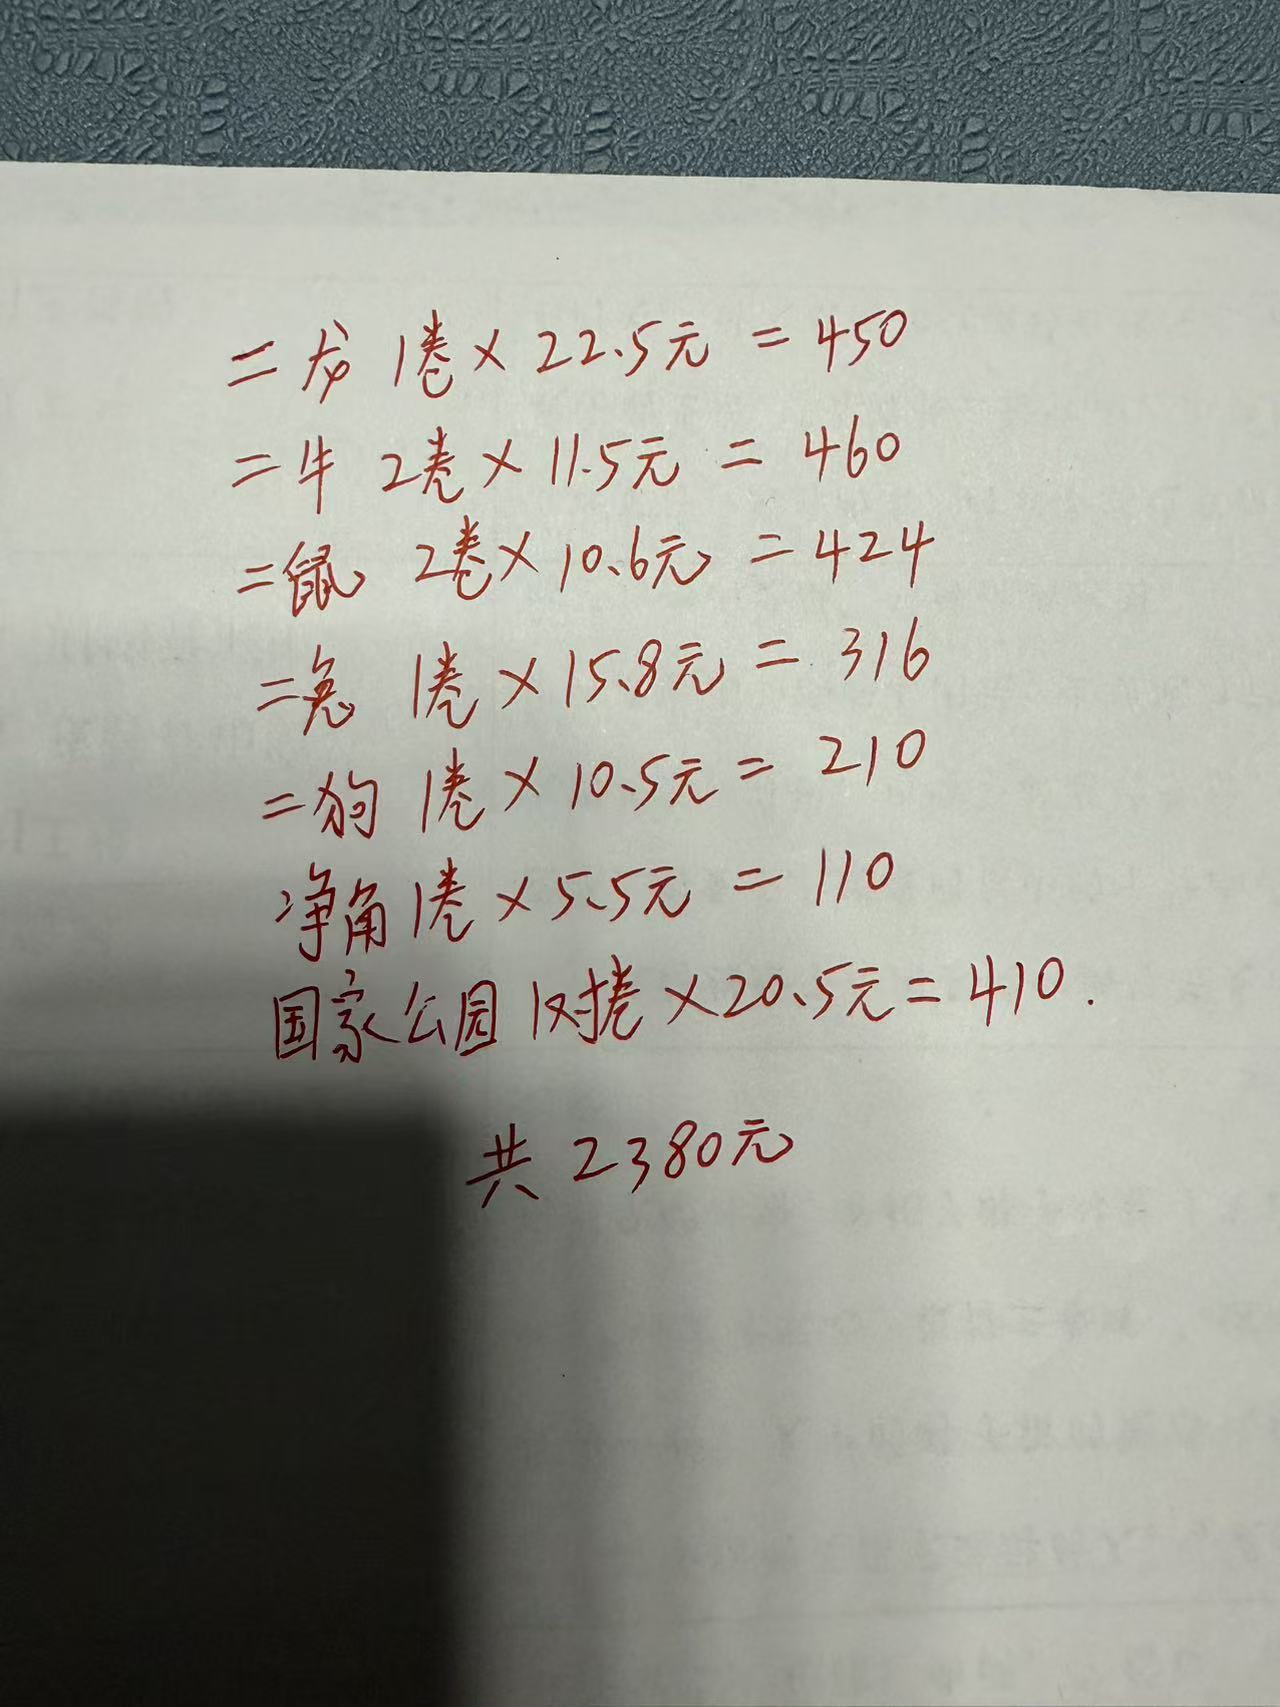 二龙 1卷×22.5元=450
二牛 2卷×11.5元=460
二鼠 2卷×10.6元=424
二兔 1卷×15.8元=316
二狗 1卷×10.5元=210
净角1卷×5.5元=110
国家公园1对卷×20.5元=410.
共2380元